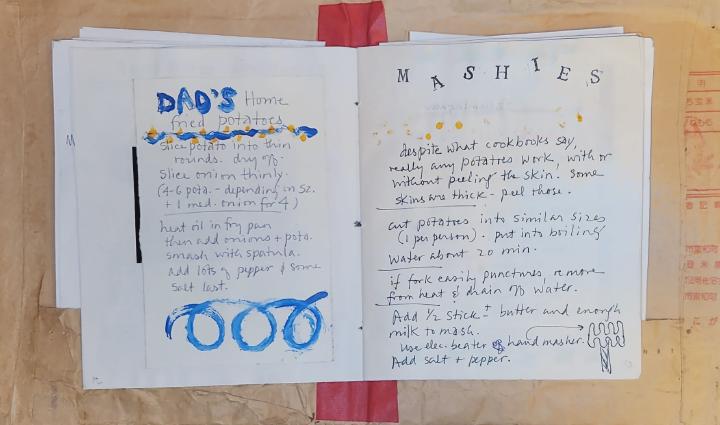 DAD'S Home
fried potatoes
slice potato into thin
rounds. dry off.
Slice onion thinly.
(4-6 pota. - depending on sz.
+ 1 med. onion for 4)
heat oil in fry pan
then add onions + pota.
smash with spatula.
add lots of pepper & some
salt last.
MASHIES
despite what cookbooks say,
really any potatoes work, with or
without peeling the skin. Some
skins are thick - peel those.
cut potatoes into similar sizes
(1 per person). put into boiling
water about 20 min.
if fork easily punctures, remove
from heat & drain off water.
Add 1/2 stick ± butter and enough
milk to mash.
Use elec. beater or hand masher.
Add salt + pepper.